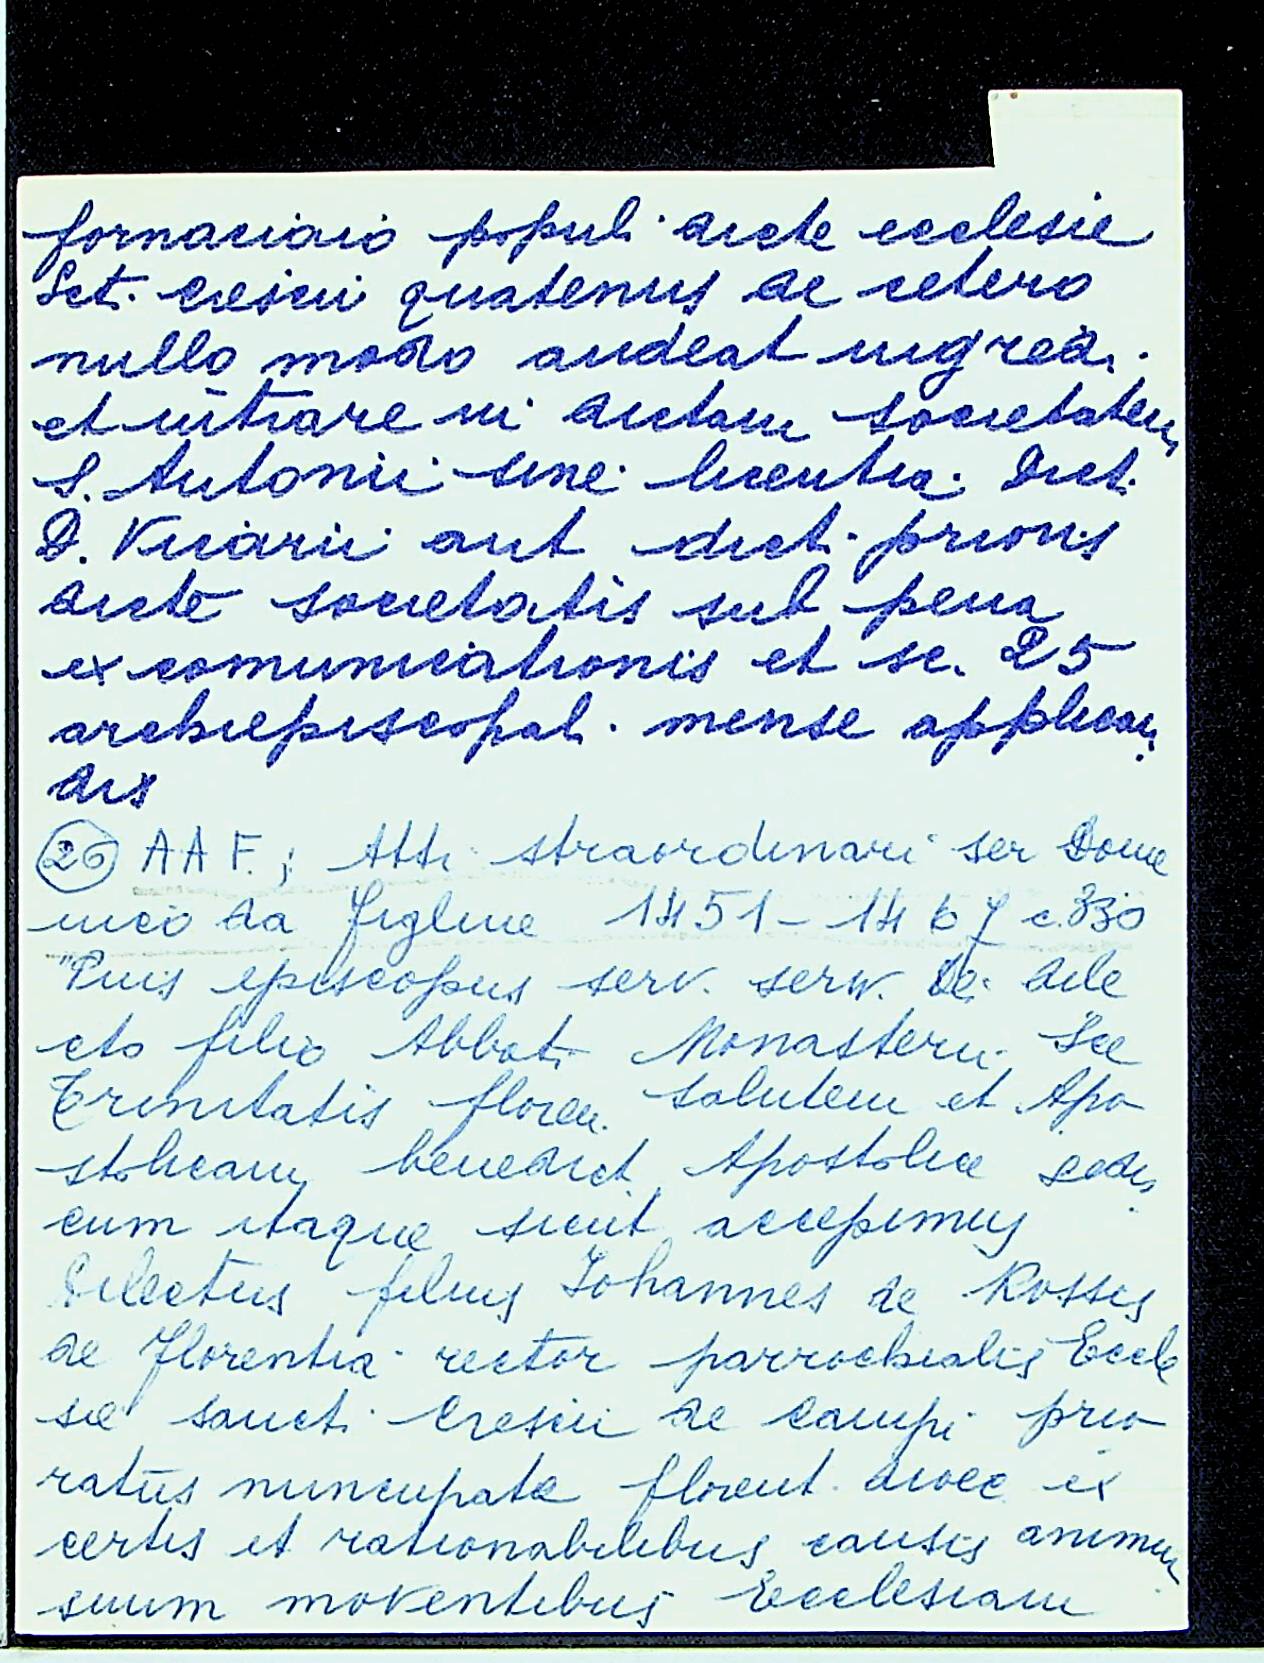 fornaciaio populi dicte ecclesie
Sct. Crescii quatenus de cetero
nullo modo audeat ingredi
et intrare in dictam societatem
S. Antonii sine licentia Dict.
D. Vicarii aut dict. prioris
dicte societatis sub pena
excomunicationis et sc. 25
archiepiscopali mense applican
dis
26 A A F.; Atti straordinari ser Dome
nico da Figline 1451-1467 c. 330
"Pius episcopus serv. serv. Dei dile
cto filio Abbati Monasterii Sce
Trinitatis floren. salutem et Apo
stolicam benedict. Apostolice sedis
cum itaque sicut accepimus
Dilectus filius Johannes de Rossis
de Florentia rector parrochialis Eccle
sie sancti Crescii de Campi prio
ratus nuncupate florent. dioec. ex
certis et rationabilibus causis animum
suum moventibus Ecclesiam